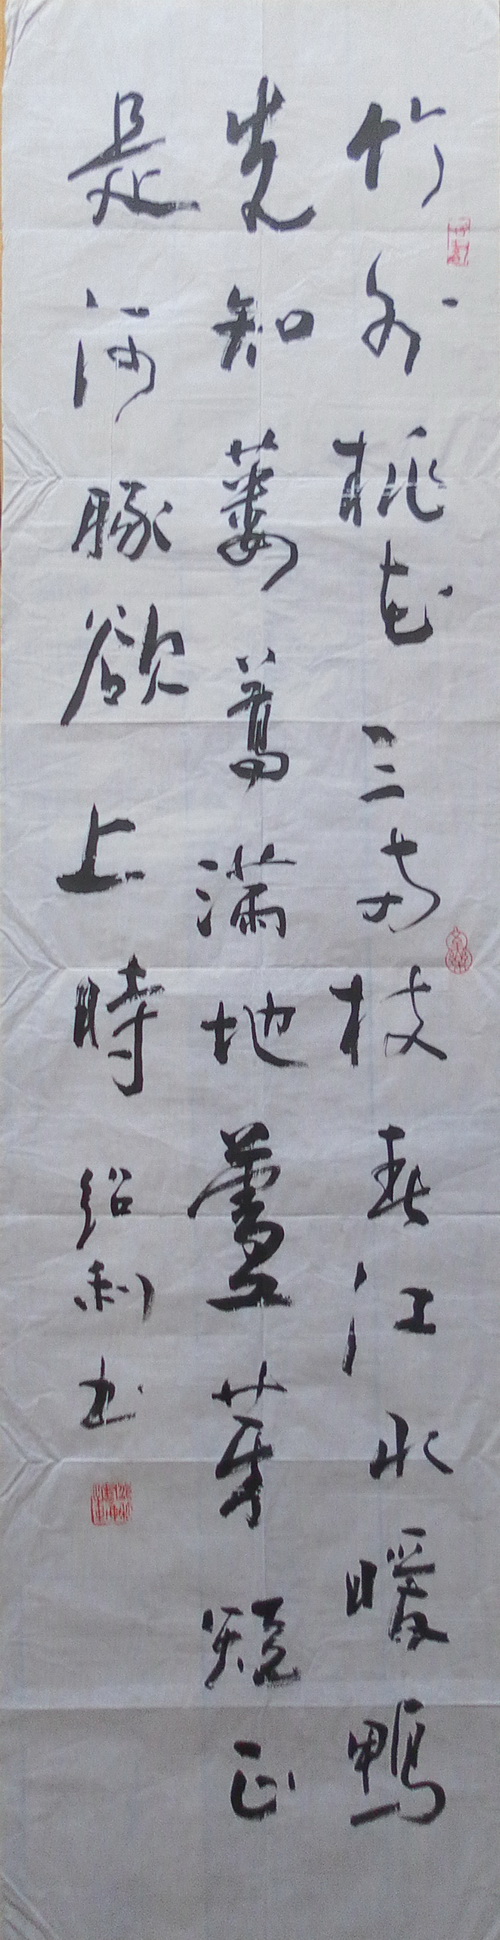 竹外桃花三兩枝春江水暖鴨
先知蔞蒿滿地蘆芽短正
是河豚欲上時紹利书